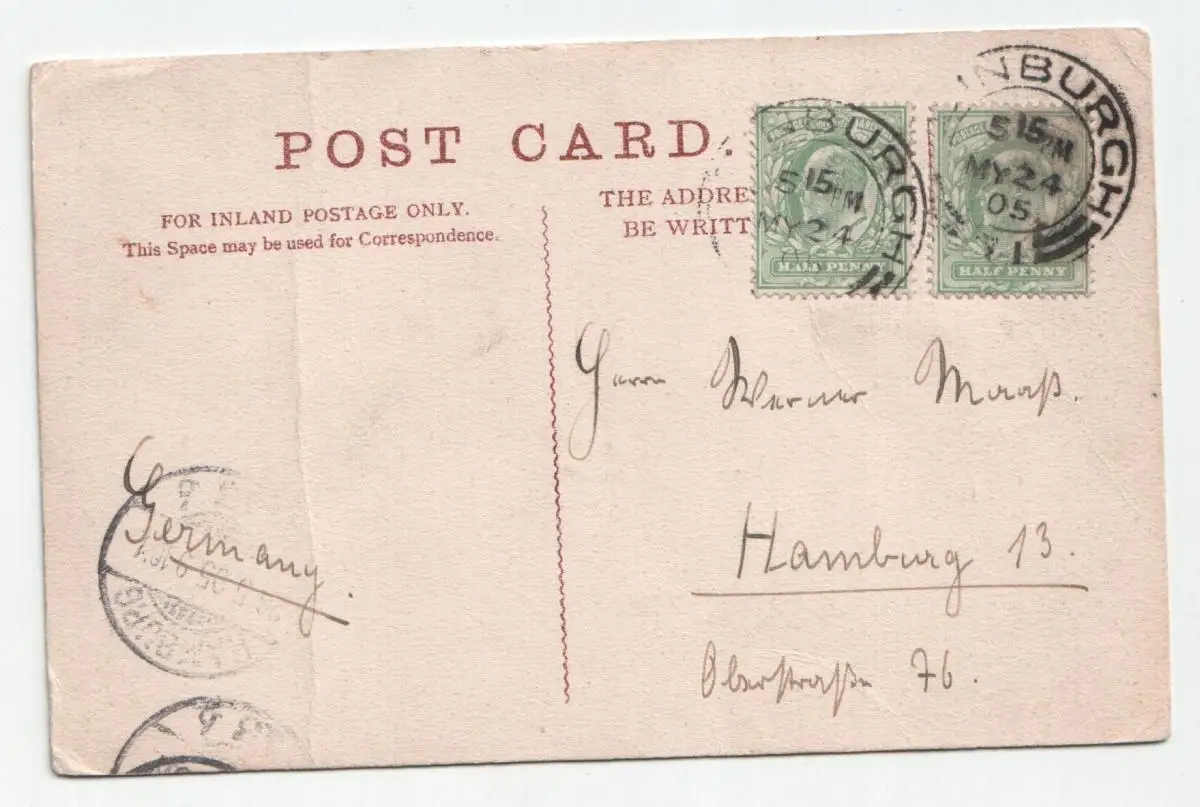 POST CARD.
FOR INLAND POSTAGE ONLY.
This Space may be used for Correspondence.
THE ADDRE
BE WRITT
NBURGH
5 15 PM
MY 24
HALF PENNY
INBURGH
5 15 PM
MY 24
05
HALF PENNY
Herrn Werner Maaß.
Hamburg 13.
Oberstraße 76.
Germany.